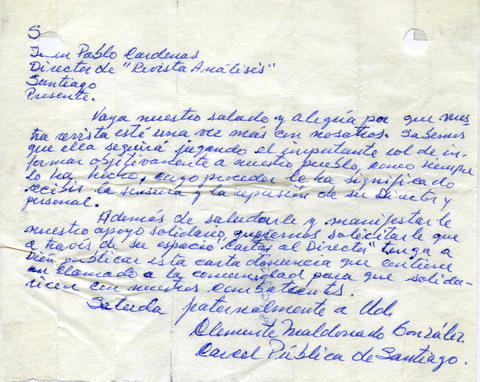 S
Juan Pablo Cardenas
Director de "Revista Análisis"
Santiago
Presente.
Vaya nuestro saludo y alegría por que nues
tra revista esté una vez más con nosotros. Sabemos
que ella seguirá jugando el importante rol de in-
formar objetivamente a nuestro pueblo, como siempre
lo ha hecho, cuyo proceder le ha significado
recibir la censura y la represión de su Director y
personal.
Además de saludarle y manifestarle
nuestro apoyo solidario, queremos solicitarle que
a través de su espacio "Cartas al Director" tenga a
bien publicar esta carta denuncia que contiene
un llamado a la comunidad para que solida-
ricen con nuestros combatientes.
Saluda fraternalmente a Ud.
Clemente Maldonado González.
Carcel Pública de Santiago.